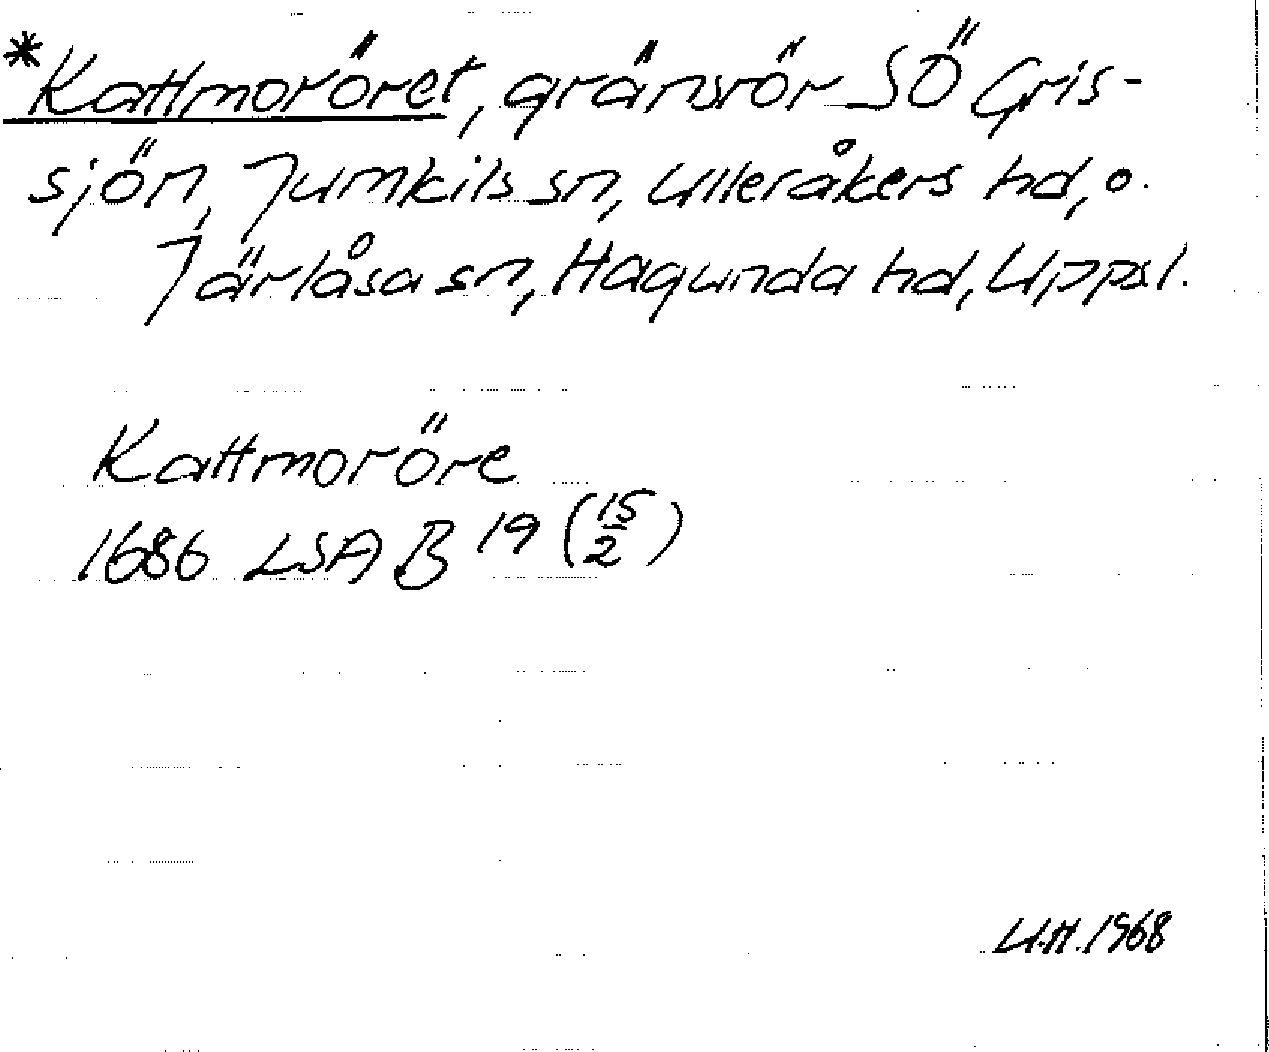 *Kattmoröret, gränsrör SÖ Gris-
sjön, Jumkils sn, Ulleråkers hd, o.
Järlåsa sn, Hagunda hd, Uppsl.
Kattmoröre
1686 LSA B 19 (15/2)
U.H. 1968